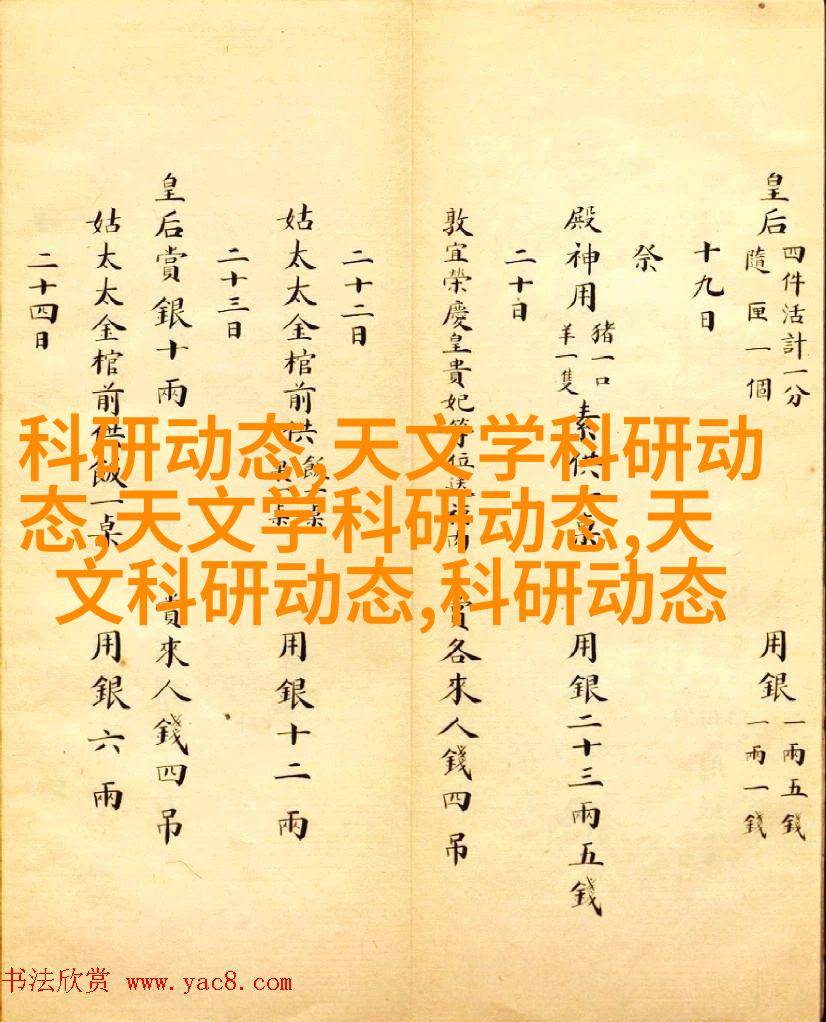 皇后 四件活計一分 隨匣一個 用銀 一兩五錢 一兩一錢
十九日
祭
殿神用 猪一口 羊一隻 素供一桌 用銀二十三兩五錢
二十日
敦宜榮慶皇貴妃等位送 賞各來人錢四吊
二十二日
姑太太金棺前供飯一桌 用銀十二兩
二十三日
皇后賞銀十兩 賞來人錢四吊
姑太太金棺前供飯一桌 用銀六兩
二十四日
科研动态,天文学科研动
态,天文学科研动态,天
文科研动态,科研动态
书法欣赏 www.yac8.com